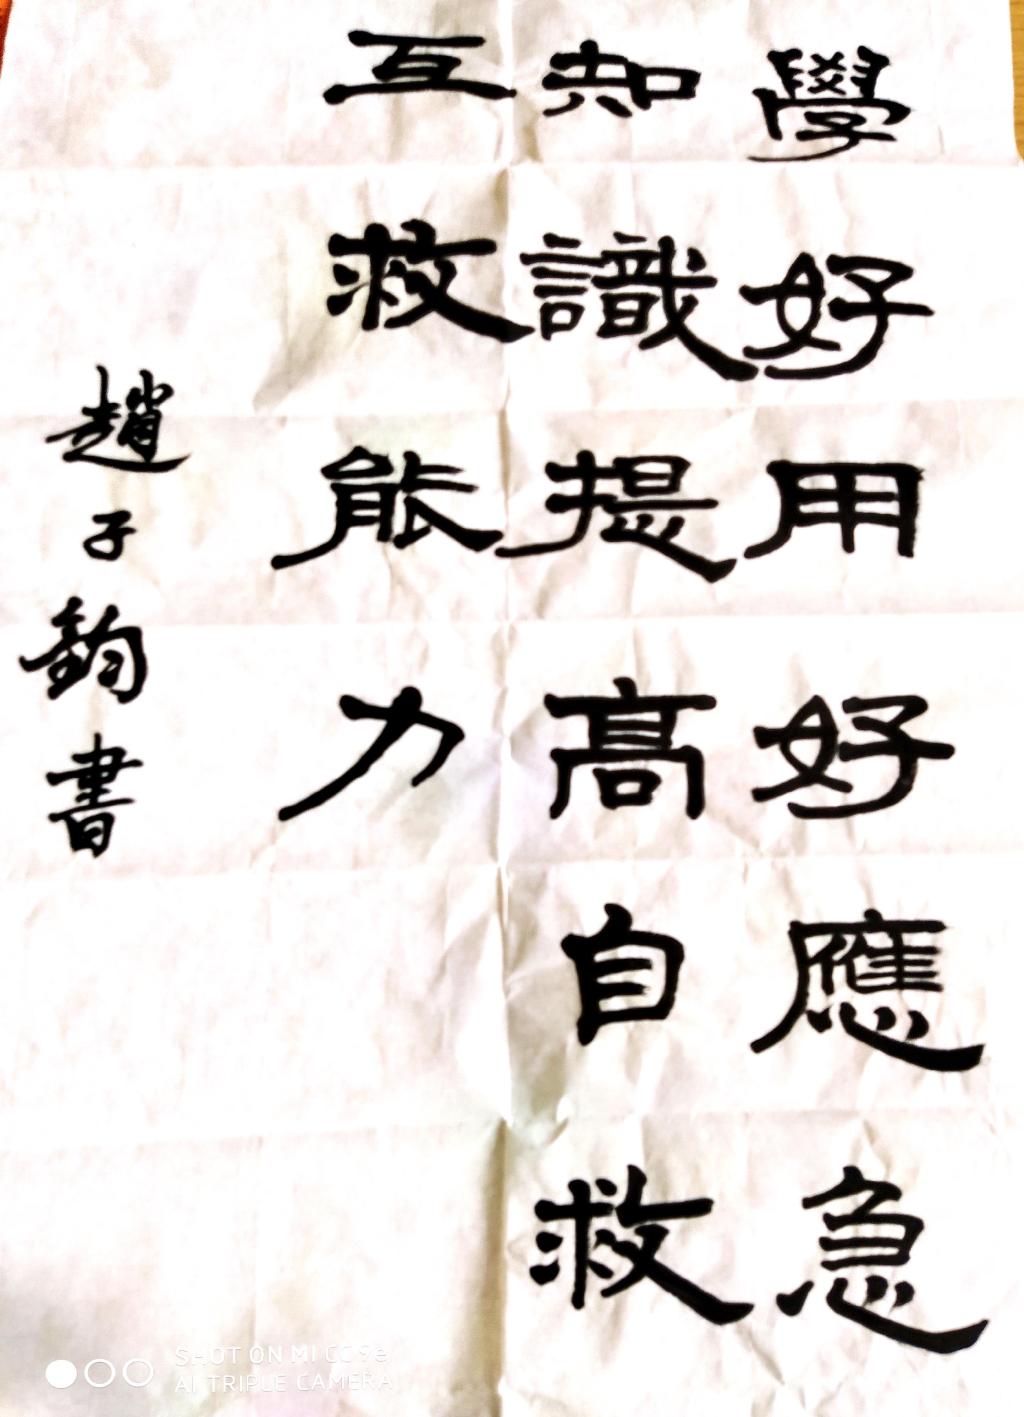 學好用好應急
知識提高自救
互救能力
趙子鈞書
SHOT ON MI CC 9e
AI TRIPLE CAMERA